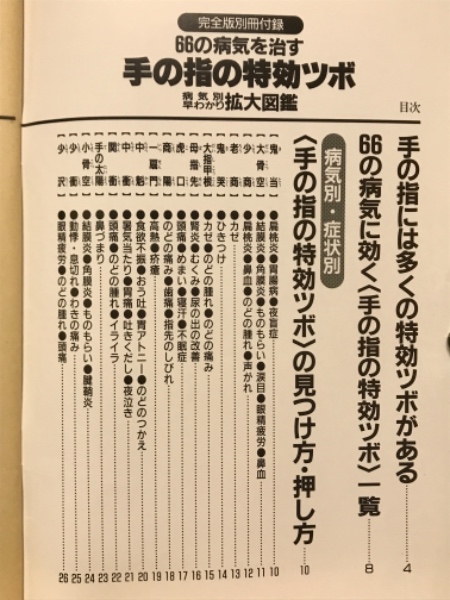 完全版別冊付録
66の病気を治す
手の指の特効ツボ
病気別早わかり拡大図鑑
目次
手の指には多くの特効ツボがある……4
66の病気に効く〈手の指の特効ツボ〉一覧……8
病気別・症状別
〈手の指の特効ツボ〉の見つけ方・押し方……10
【鬼当】●扁桃炎●胃腸病●夜盲症……10
【大骨空】●結膜炎●角膜炎●ものもらい●涙目●眼精疲労●鼻血……11
【少商】●扁桃炎●鼻血●のどの腫れ●声がれ……12
【老商】●カゼ……13
【鬼哭】●ひきつけ……14
【大指甲根】●カゼ●のどの腫れ●のどの痛み……15
【母指先】●腎炎●むくみ●尿の出の改善……16
【虎口】●頭痛●めまい●寝汗●不眠症……17
【商陽】●のどの痛み●歯痛●指先のしびれ……18
【一扇門】●高熱●疥癬……19
【中魁】●食欲不振●おう吐●胃アトニー●のどのつかえ……20
【中衝】●暑気当たり●胃痛●吐きくだし●夜泣き……21
【関衝】●頭痛●のどの腫れ●イライラ……22
【手の太陽】●鼻づまり……23
【小骨空】●結膜炎●角膜炎●ものもらい●腱鞘炎……24
【少衝】●動悸・息切れ●わきの痛み……25
【少沢】●眼精疲労●のどの腫れ●頭痛……26